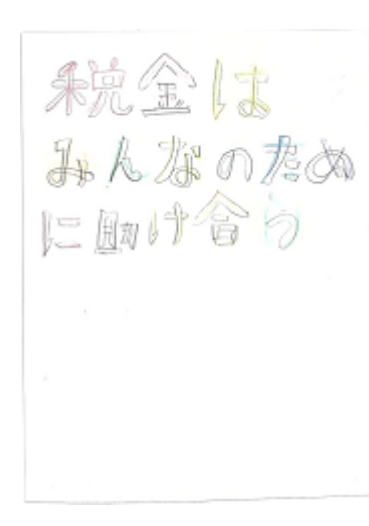 税金は
みんなのため
に助け合う